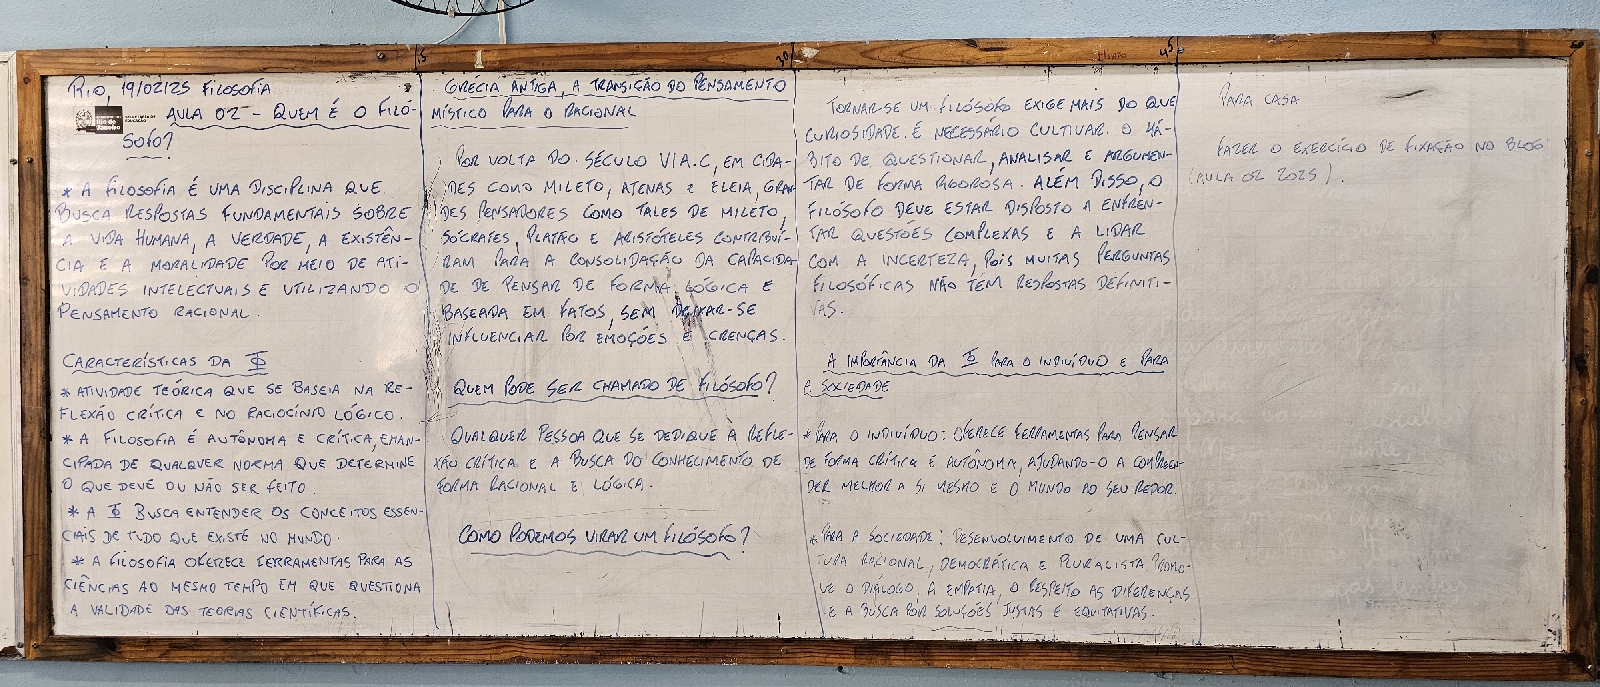 Rio, 19/02/25 Filosofia
AULA 02 - QUEM É O FILÓ-
SOFO?
* A FILOSOFIA É UMA DISCIPLINA QUE
BUSCA RESPOSTAS FUNDAMENTAIS SOBRE
A VIDA HUMANA, A VERDADE, A EXISTÊN-
CIA E A MORALIDADE POR MEIO DE ATI-
VIDADES INTELECTUAIS E UTILIZANDO O
PENSAMENTO RACIONAL.
CARACTERÍSTICAS DA Φ
* ATIVIDADE TEÓRICA QUE SE BASEIA NA RE-
FLEXÃO CRÍTICA E NO RACIOCÍNIO LÓGICO.
* A FILOSOFIA É AUTÔNOMA E CRÍTICA, EMAN-
CIPADA DE QUALQUER NORMA QUE DETERMINE
O QUE DEVE OU NÃO SER FEITO.
* A Φ BUSCA ENTENDER OS CONCEITOS ESSEN-
CIAIS DE TUDO QUE EXISTE NO MUNDO.
* A FILOSOFIA OFERECE FERRAMENTAS PARA AS
CIÊNCIAS AO MESMO TEMPO EM QUE QUESTIONA
A VALIDADE DAS TEORIAS CIENTÍFICAS.
15
GRÉCIA ANTIGA, A TRANSIÇÃO DO PENSAMENTO
MÍSTICO PARA O RACIONAL
POR VOLTA DO SÉCULO VI A.C, EM CIDA-
DES COMO MILETO, ATENAS E ELEIA, GRAN
DES PENSADORES COMO TALES DE MILETO,
SÓCRATES, PLATÃO E ARISTÓTELES CONTRIBUÍ-
RAM PARA A CONSOLIDAÇÃO DA CAPACIDA-
DE DE PENSAR DE FORMA LÓGICA E
BASEADA EM FATOS, SEM DEIXAR-SE
INFLUENCIAR POR EMOÇÕES E CRENÇAS.
QUEM PODE SER CHAMADO DE FILÓSOFO?
QUALQUER PESSOA QUE SE DEDIQUE À REFLE-
XÃO CRÍTICA E A BUSCA DO CONHECIMENTO DE
FORMA RACIONAL E LÓGICA.
COMO PODEMOS VIRAR UM FILÓSOFO?
30
TORNAR-SE UM FILÓSOFO EXIGE MAIS DO QUE
CURIOSIDADE. É NECESSÁRIO CULTIVAR O HÁ-
BITO DE QUESTIONAR, ANALISAR E ARGUMEN-
TAR DE FORMA RIGOROSA. ALÉM DISSO, O
FILÓSOFO DEVE ESTAR DISPOSTO A ENFREN-
TAR QUESTÕES COMPLEXAS E A LIDAR
COM A INCERTEZA, POIS MUITAS PERGUNTAS
FILOSÓFICAS NÃO TÊM RESPOSTAS DEFINITI-
VAS.
A IMPORTÂNCIA DA Φ PARA O INDIVÍDUO E PARA
SOCIEDADE
* PARA O INDIVÍDUO: OFERECE FERRAMENTAS PARA PENSAR
DE FORMA CRÍTICA E AUTÔNOMA, AJUDANDO-O A COMPREEN-
DER MELHOR A SI MESMO E O MUNDO AO SEU REDOR.
* PARA A SOCIEDADE: DESENVOLVIMENTO DE UMA CUL-
TURA RACIONAL, DEMOCRÁTICA E PLURALISTA. PROMO-
VE O DIÁLOGO, A EMPATIA, O RESPEITO AS DIFERENÇAS
E A BUSCA POR SOLUÇÕES JUSTAS E EQUITATIVAS.
45
PARA CASA
FAZER O EXERCÍCIO DE FIXAÇÃO NO BLOG
(AULA 02 2025).